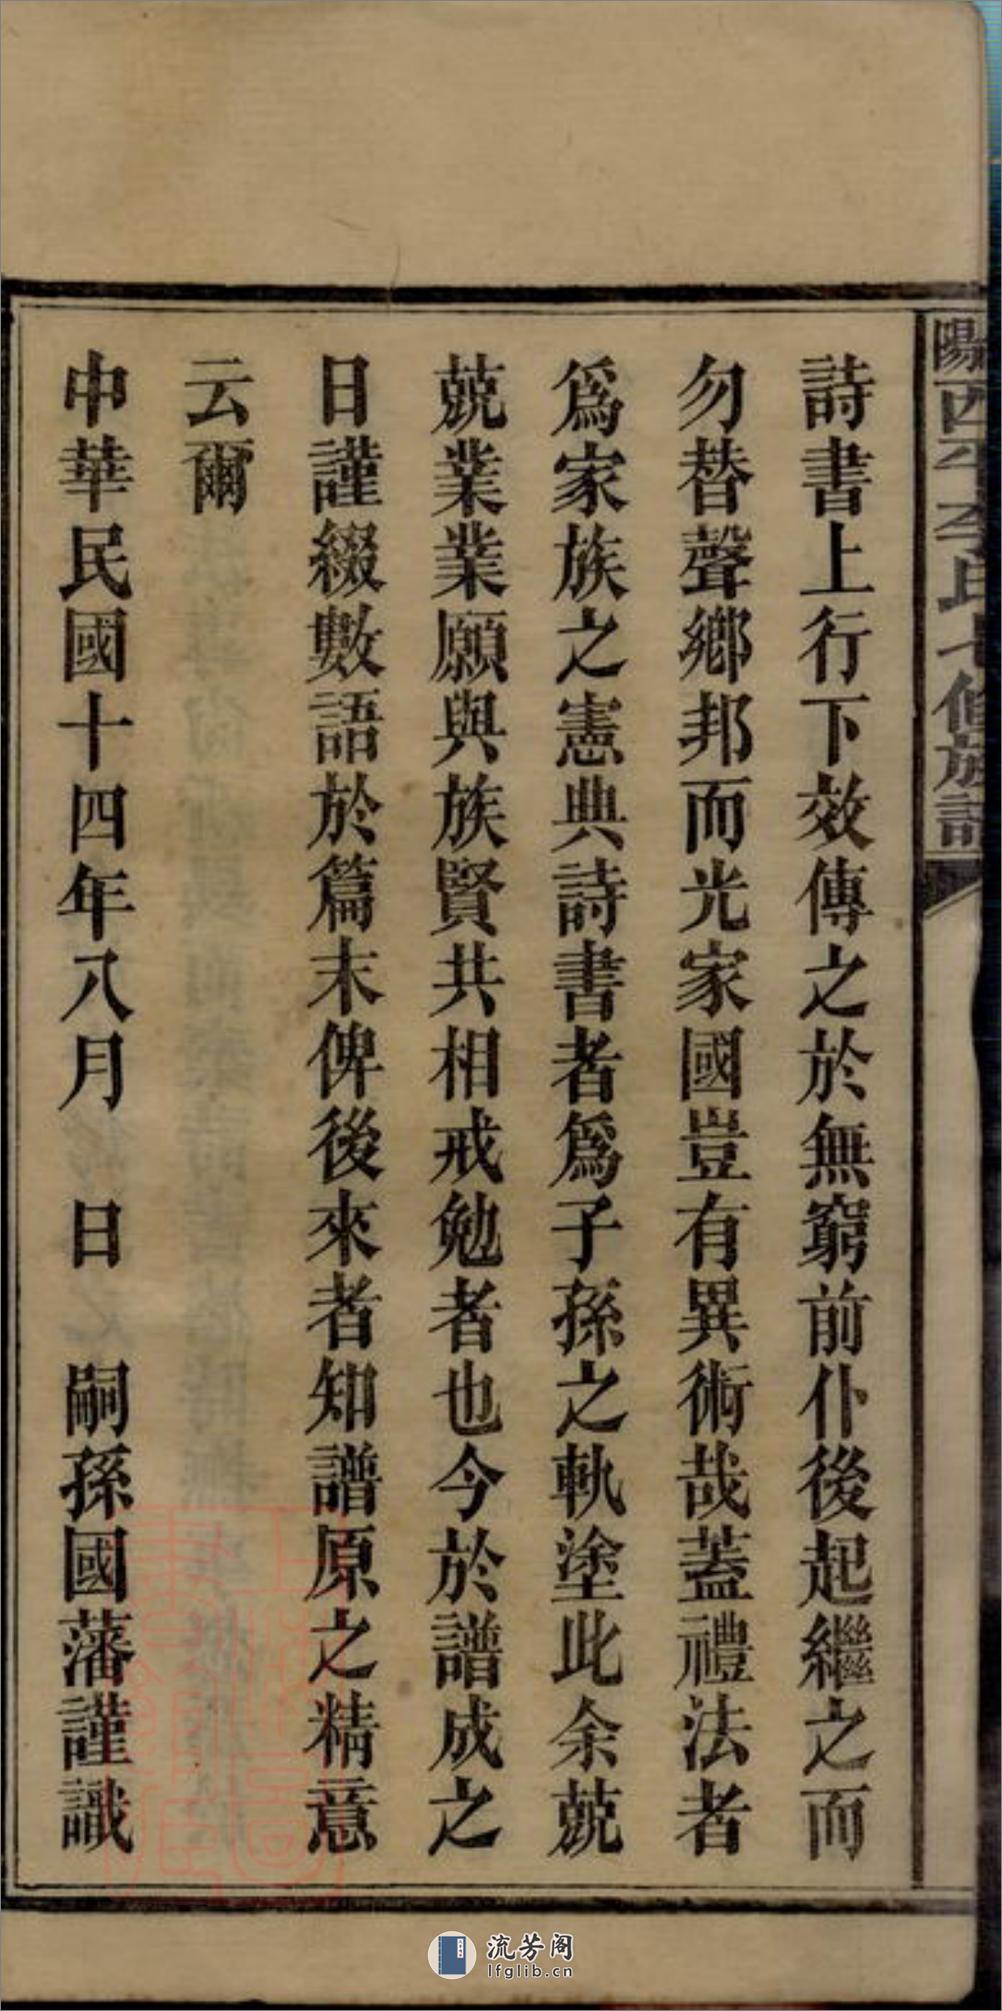 陽西平李氏七修族譜
詩書上行下效傳之於無窮前仆後起繼之而
勿替聲鄉邦而光家國豈有異術哉蓋禮法者
爲家族之憲典詩書者爲子孫之軌塗此余兢
兢業業願與族賢共相戒勉者也今於譜成之
日謹綴數語於篇末俾後來者知譜原之精意
云爾
中華民國十四年八月 日 嗣孫國藩謹識
流芳阁
lfglib.cn